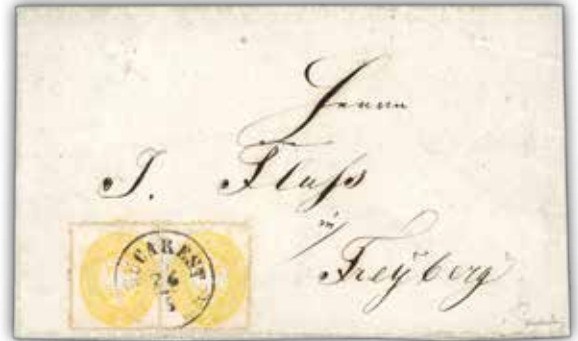 Herrn
J. Flaſs
in
Freÿberg
BUCAREST